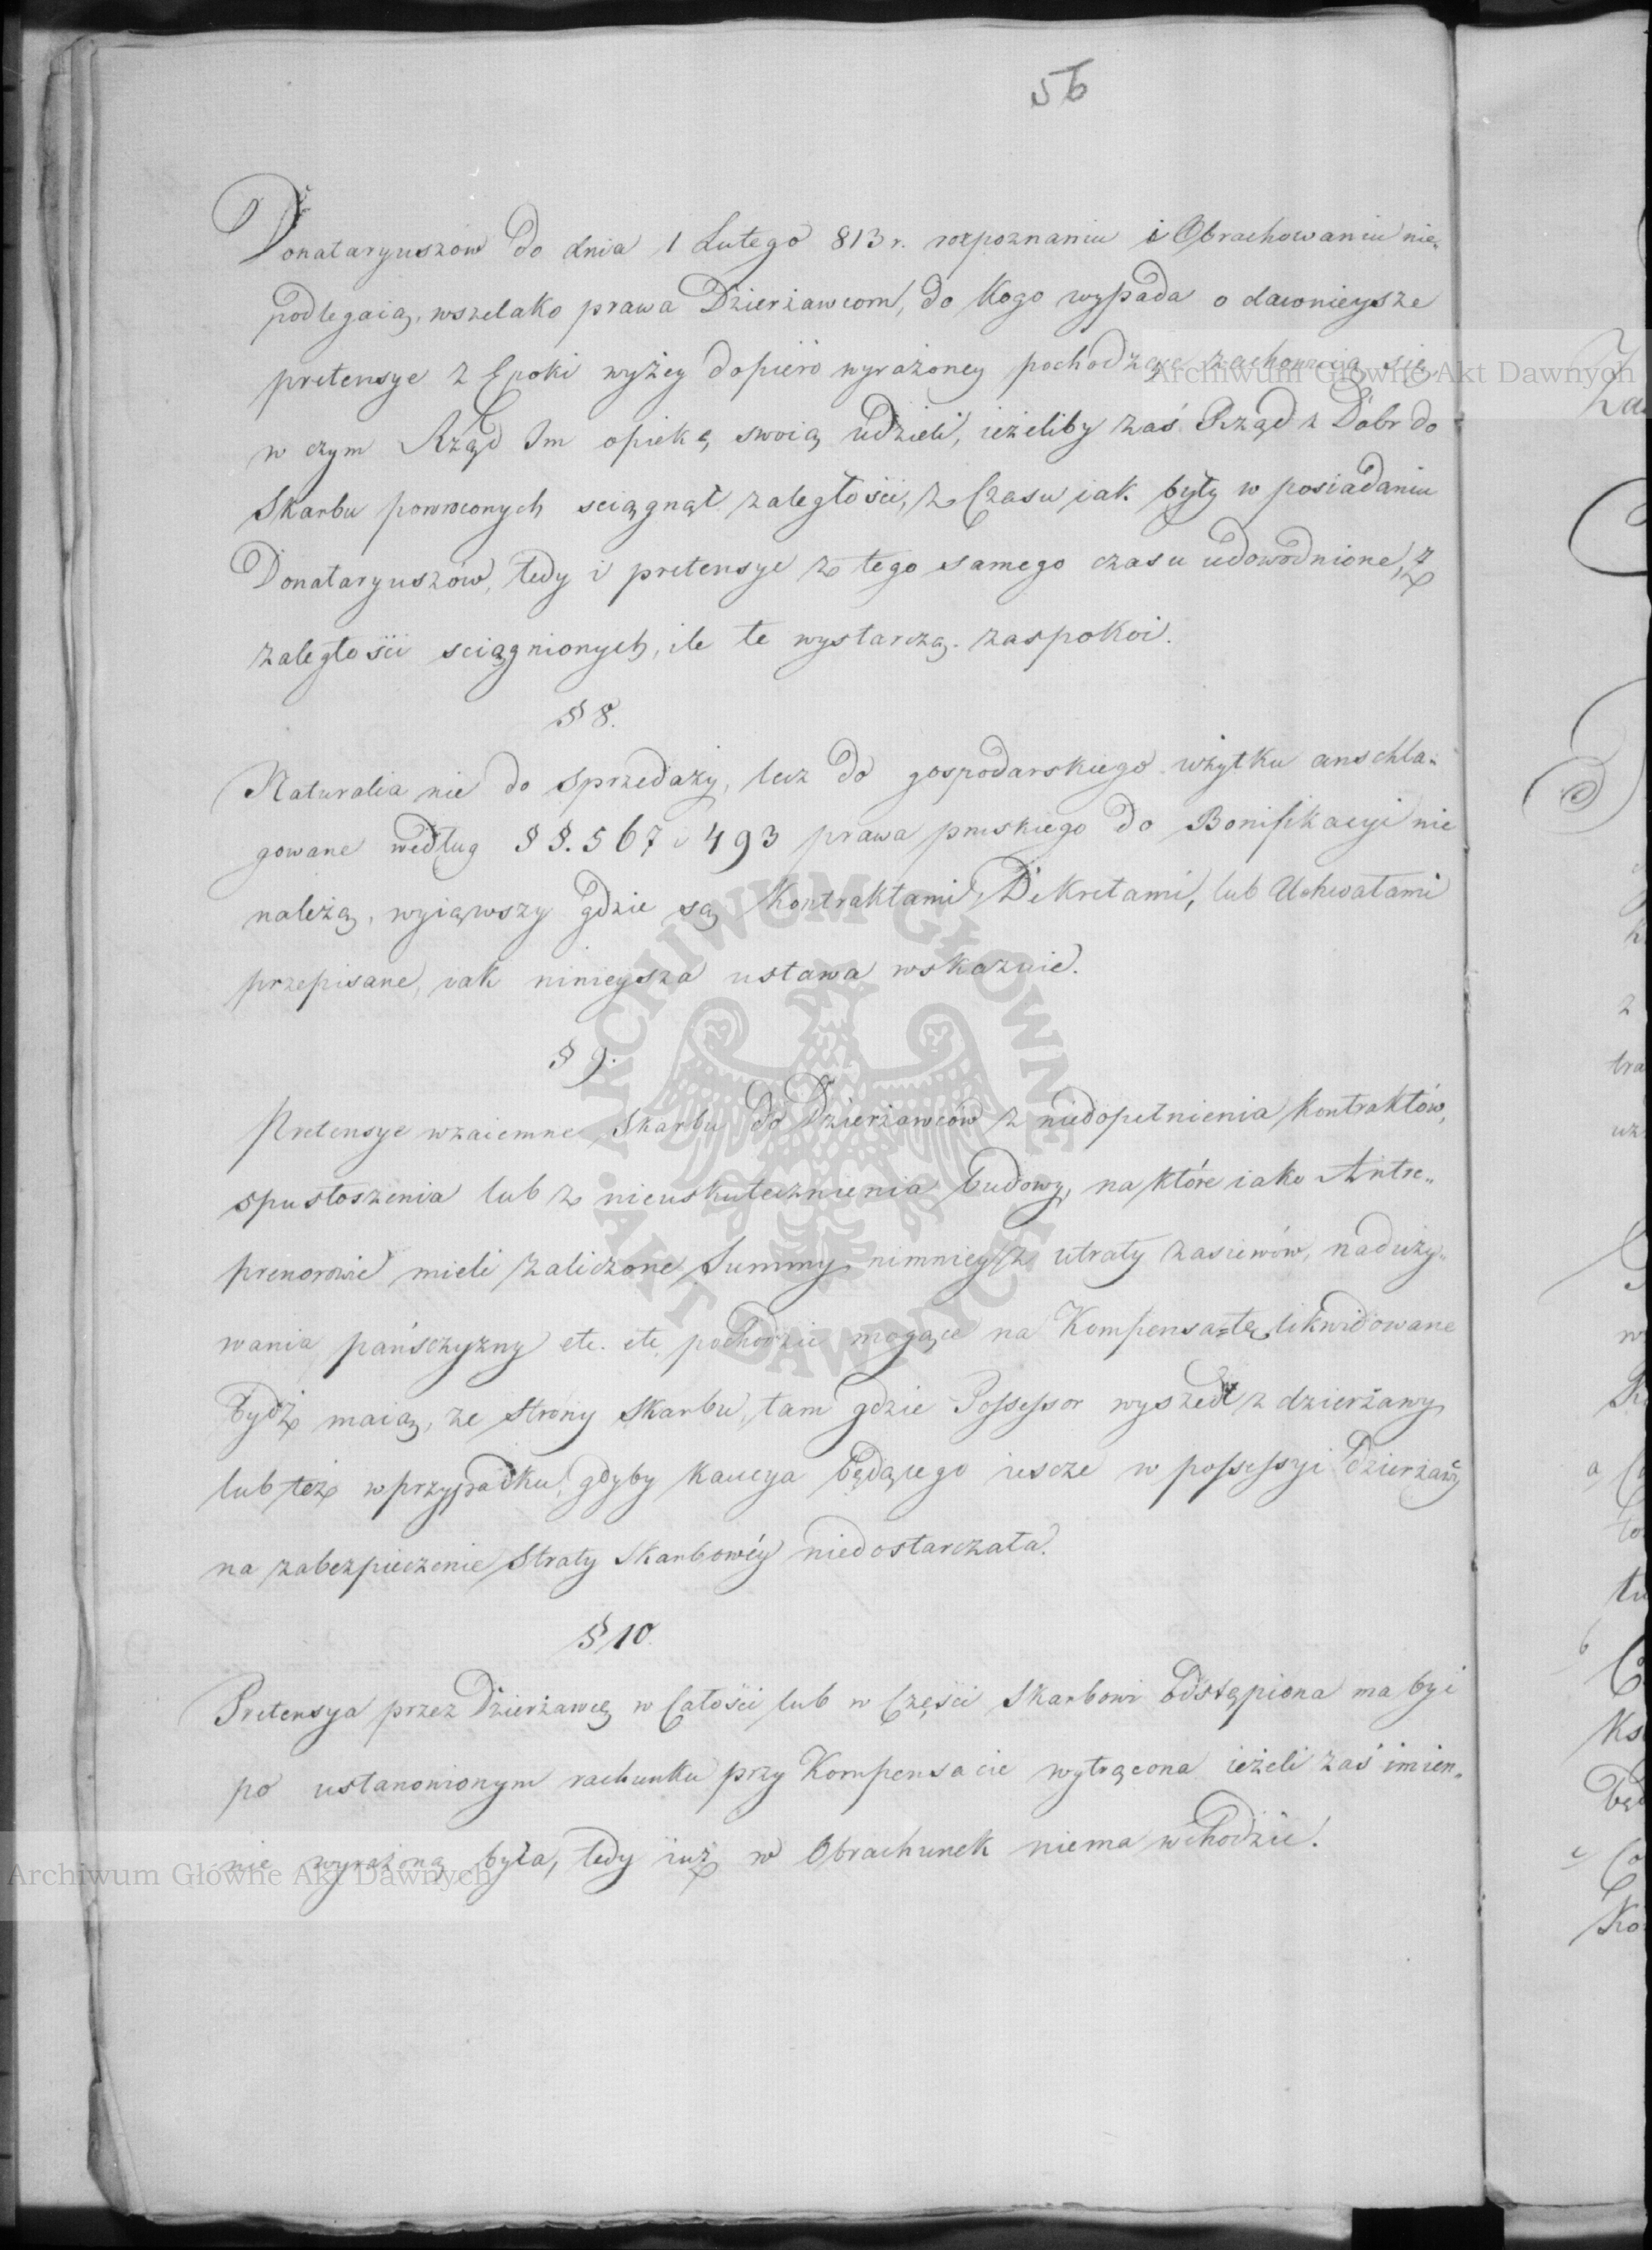 56
Donataryuszow do dnia 1 Lutego 813 r. rozpoznaniu i Obrachowaniu nie„
podlegaią, wszelako prawa Dzierżawcom, do kogo wypada o dawnieysze
pretensye z Epoki wyżey dopiero wyrażoney pochodzące zachowuią się,
w czym Rząd Im opiekę swoią udzieli, ieżeliby zaś Rząd z Dobr do
Skarbu powroconych sciągnął zaległości, z Czasu iak były w posiadaniu
Donataryuszów, tedy i pretensye z tego samego czasu udowodnione, z
zaległości sciągnionych, ile te wystarczą. zaspokoi.
§ 8.
Naturalia nie do sprzedaży, lecz do gospodarskiego użytku anschla„
gowane według §§. 567 i 493 prawa pruskiego do Bonifikacyi nie
należą, wyiąwszy gdzie są Kontraktami, Dekretami, lub Uchwałami
przepisane, iak ninieysza ustawa wskazuie.
§ 9.
Pretensye wzaiemne Skarbu do Dzierżawców z niedopełnienia kontraktów,
spustoszenia lub z nieuskutecznienia budowy, na które iako Antre„
prenerowie mieli zaliczone Summy, niemniey z utraty zasiewów, naduży„
wania pańsczyzny etc. etc. pochodzić mogące na Kompensatę likwidowane
bydź maią, ze strony Skarbu, tam gdzie Possessor wyszedł z dzierżawy
lub też w przypadku, gdyby kaucya będącego iescze w possessyi dzierżawy
na zabezpieczenie Straty Skarbowéy niedostarczała.
§ 10.
Pretensya przez Dzierżawcę w Całości lub w Części Skarbowi odstąpiona ma byi
po ustanowionym rachunku przy Kompensacie wytrącona ieżeli zaś imien„
nie wyrażoną była, tedy iuż w Obrachunek niema wchodzić.
Archiwum Główne Akt Dawnych
ARCHIWUM GŁÓWNE AKT DAWNYCH
Archiwum Główne Akt Dawnych